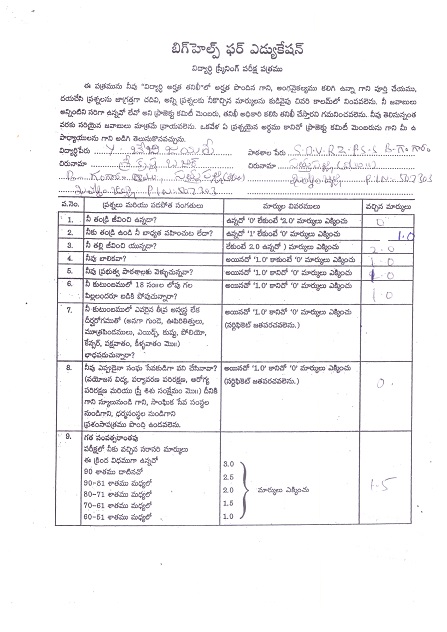 బిగ్‌హెల్ప్ ఫర్ ఎడ్యుకేషన్
విద్యార్థి స్క్రీనింగ్ పరీక్ష పత్రము
ఈ పత్రమును నీవు "విద్యార్థి అర్హత తనిఖీ"లో అర్హత పొందిన గాని, అంగవైకల్యము కలిగి ఉన్నా గాని పూర్తి చేయుము,
దయచేసి ప్రశ్నలను జాగ్రత్తగా చదివి, అన్ని ప్రశ్నలకు నీకొచ్చిన మార్కులను కుడివైపు చివరి కాలమ్‌లో నింపవలెను. నీ జవాబులు
అన్నింటిని సరిగా ఉన్నవో లేవో అని ప్రాజెక్టు కమిటీ మెంబరు, తనిఖీ అధికారి కలిసి తనిఖీ చేస్తారని గమనించవలెను. నీవు తెలిసినన్నత
వరకు సరియైన జవాబులు మాత్రమే వ్రాయవలెను. ఒకవేళ ఏ ప్రశ్నయైన అర్థము కానిచో ప్రాజెక్టు కమిటీ మెంబరును గాని మీ ఉ
పాధ్యాయులను గాని అడిగి తెలుసుకొనవచ్చును.
విద్యార్థిపేరు
పాఠశాల పేరు S.A.V.R.Z.P.S.S
చిరునామా
చిరునామా
PIN. 507303
వ.నెం. ప్రశ్నలు మరియు పరిశోధక సంగతులు మార్కుల వివరములు వచ్చిన మార్కులు
1. నీ తండ్రి జీవించి ఉన్నడా? ఉన్నచో '0' లేకుంటే '2.0' మార్కులు ఎక్కించు 0
2. నీకు తండ్రి ఉండి నీ బాధ్యత వహించుట లేదా? ఉన్నచో '0' లేకుంటే '1.0' మార్కులు ఎక్కించు 1.0
3. నీ తల్లి జీవించి యున్నదా? లేకుంటే 2.0 ఉన్నచో మార్కులు ఎక్కించు 2.0
4. నీవు బాలికవా? అయినచో '1.0' కాకుంటే '0' మార్కులు ఎక్కించు 1.0
5. నీవు ప్రభుత్వ పాఠశాలకు వెళ్ళుచున్నావా? అయినచో '1.0' కానిచో '0' మార్కులు ఎక్కించు 1.0
6. నీ కుటుంబములో 18 సం॥ల లోపు గల
పిల్లలందరూ బడికి పోవుచున్నారా? అయినచో '1.0' కానిచో '0' మార్కులు ఎక్కించు 1.0
7. నీ కుటుంబములో ఎవరైన తీవ్ర అస్వస్థ లేక
దీర్ఘరోగముతో (అనగా గుండె, ఊపిరితిత్తులు,
మూత్రపిండములు, ఎయిడ్స్, కుష్ఠు, పోలియో,
కేన్సర్, పక్షవాతం, కీళ్ళవాతం మొ॥)
బాధపడుచున్నారా? అయినచో '1.0' కానిచో '0' మార్కులు ఎక్కించు
(సర్టిఫికెట్ జతపరచవలెను.)
8. నీవు ఎప్పుడైనా సంఘ సేవకుడిగా పని చేసినావా?
(వయోజన విద్య, పర్యావరణ పరిరక్షణ, ఆరోగ్య
పరిరక్షణ మరియు స్త్రీ శిశు సంక్షేమం మొ॥) దీనికి
గాని స్కూలునుండి గాని, సాంఘిక సేవ సంస్థల
నుండిగాని, ధర్మసంస్థల నుండిగాని
ప్రశంసాపత్రము పొంది ఉండవలెను. అయినచో '1.0' కానిచో '0' మార్కులు ఎక్కించు
(సర్టిఫికెట్ జతపరచవలెను.) 0
9. గత సంవత్సరాంతపు
పరీక్షలో నీకు వచ్చిన సరాసరి మార్కులు
ఈ క్రింది విధముగా ఉన్నచో
90 శాతము దాటినచో 3.0
90-81 శాతము మధ్యలో 2.5
80-71 శాతము మధ్యలో 2.0 మార్కులు ఎక్కించు 1.5
70-61 శాతము మధ్యలో 1.5
60-51 శాతము మధ్యలో 1.0